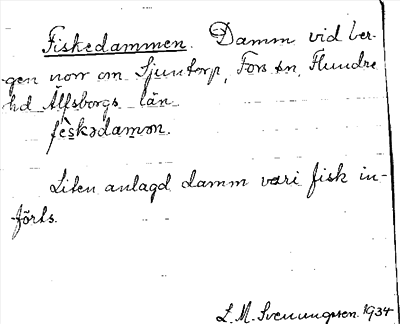 Fiskedammen. Damm vid ber-
gen norr om Sjuntorp, Fors sn, Flundre
hd Älfsborgs län
fèskədamən.
Liten anlagd damm vari fisk in-
förts.
L. M. Svenungsson. 1934